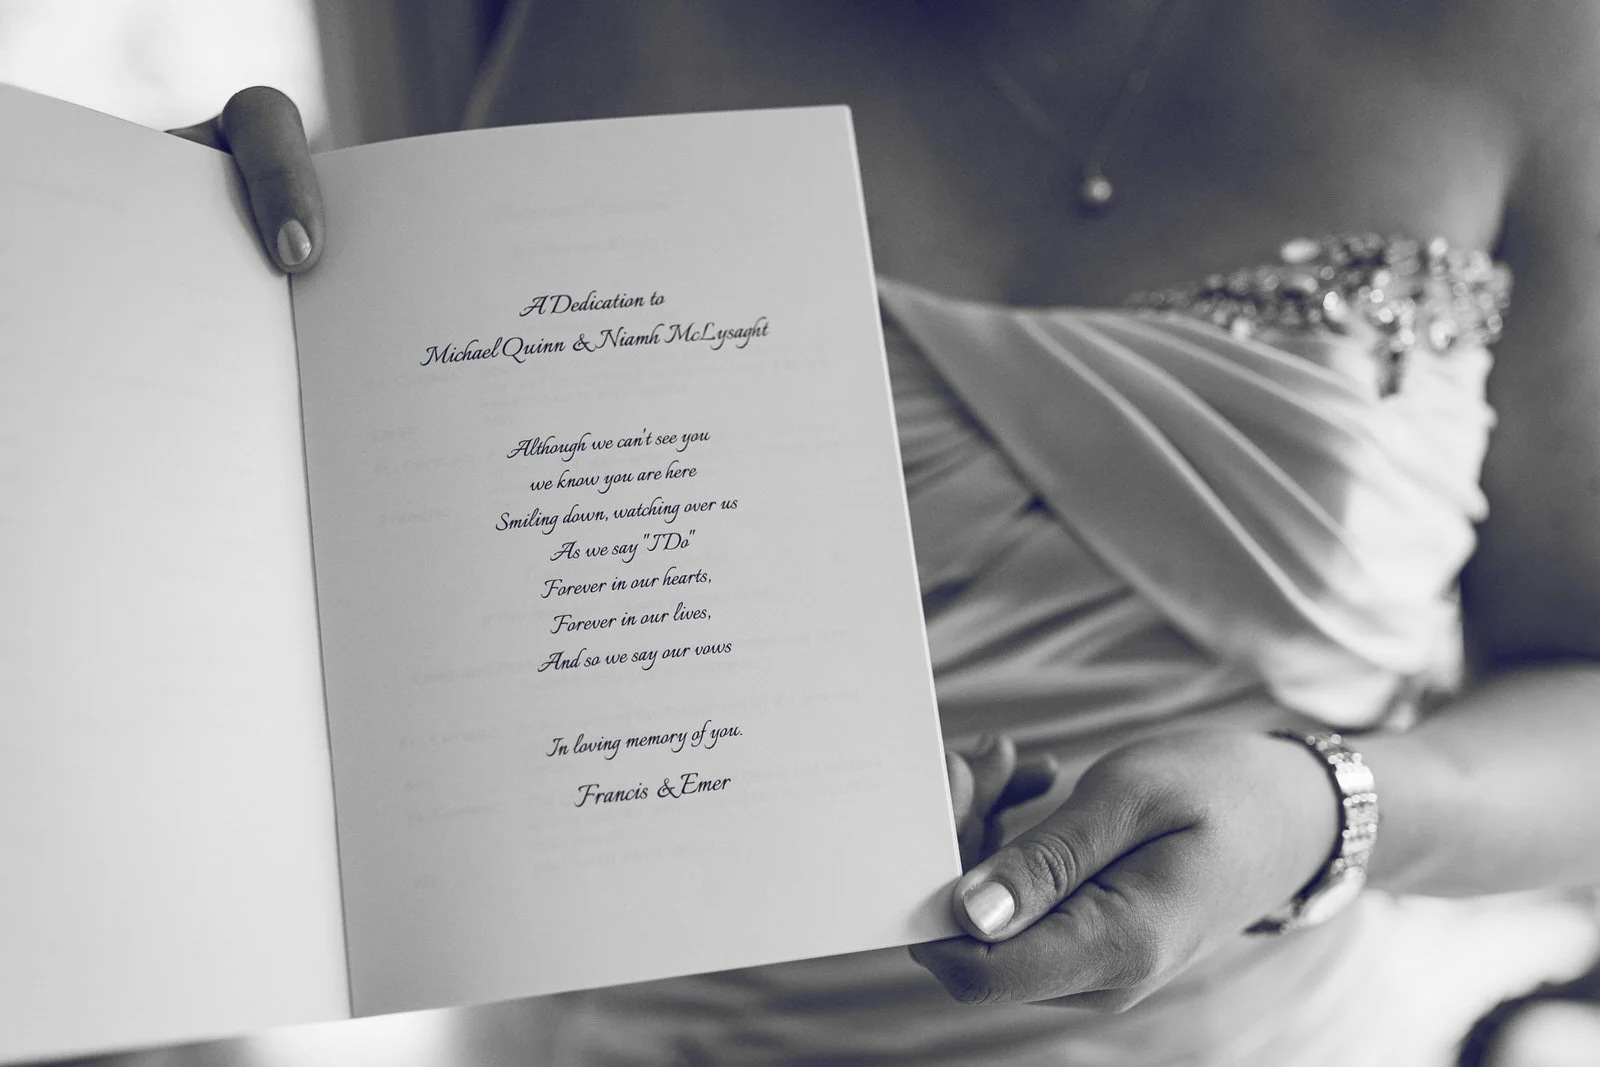 A Dedication to
Michael Quinn & Niamh McLysaght
Although we can't see you
we know you are here
Smiling down, watching over us
As we say "I Do"
Forever in our hearts,
Forever in our lives,
And so we say our vows
In loving memory of you.
Francis & Emer